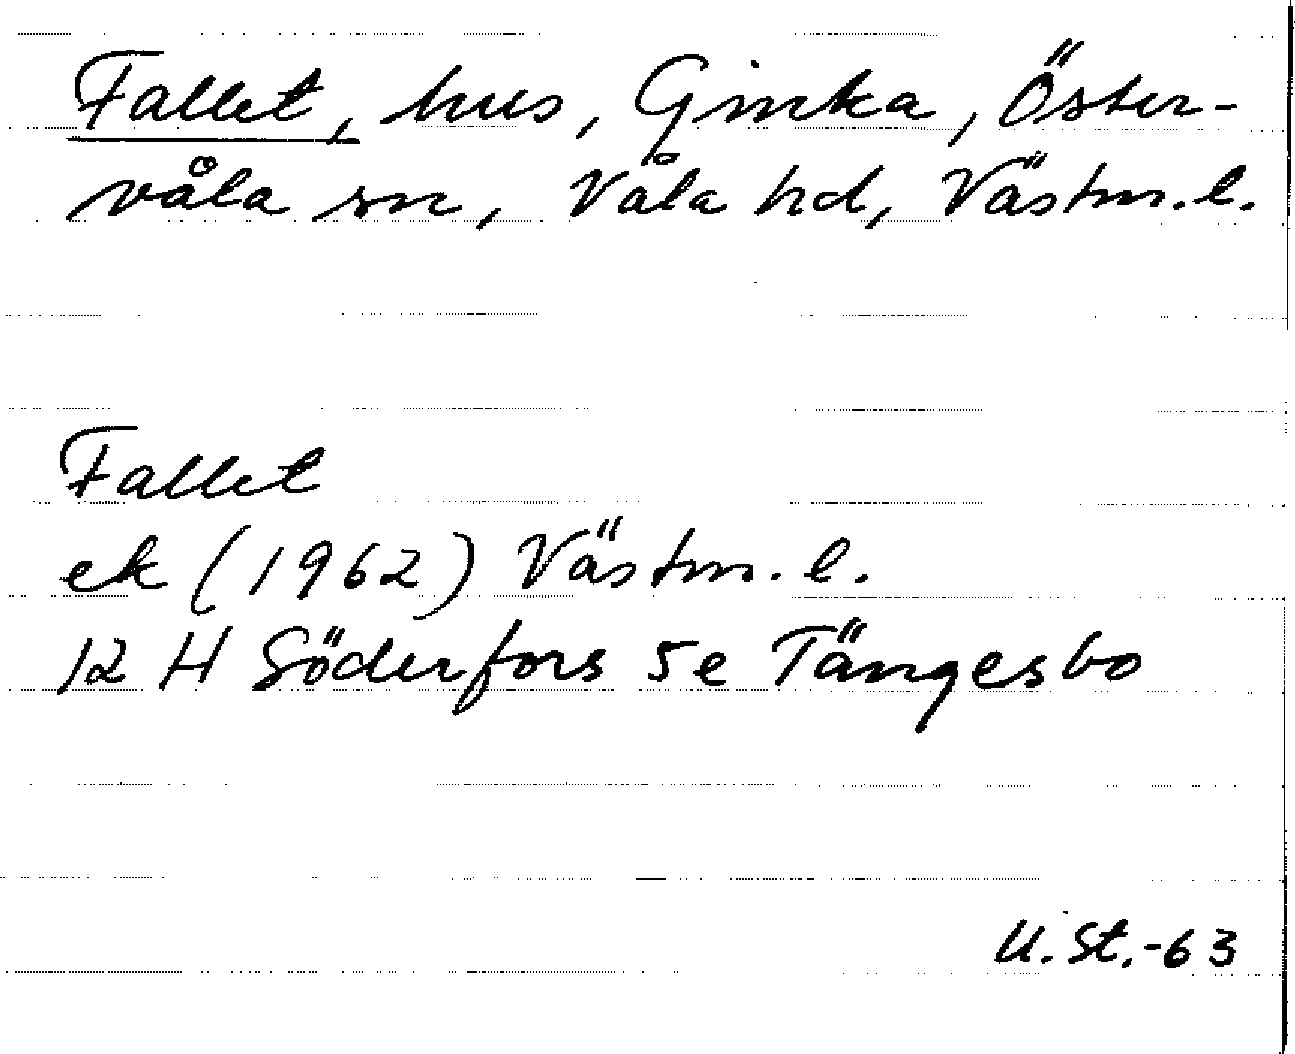 Fallet, hus, Ginka, Öster-
våla sn, Våla hd, Västm. l.
Fallet
ek (1962) Västm. l.
12 H Söderfors 5e Tängesbo
U. St. -63